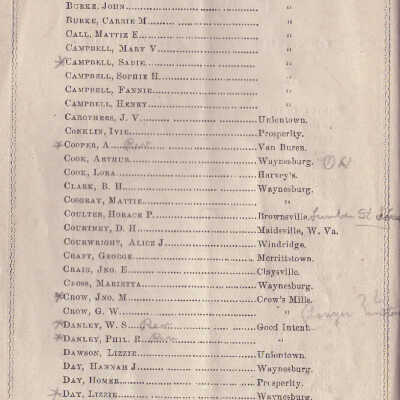 BURKE, JOHN "
BURKE, CARRIE M "
CALL, MATTIE E "
CAMPBELL, MARY V "
*CAMPBELL, SADIE "
CAMPBELL, SOPHIE H "
CAMPBELL, FANNIE "
CAMPBELL, HENRY "
CAROTHERS, J. V Uniontown.
CONKLIN, IVIE Prosperity.
*COOPER, A Rev. Van Buren.
COOK, ARTHUR Waynesburg.
COOK, LORA Harvey's.
CLARK, B. H Waynesburg.
COSGRAY, MATTIE "
COULTER, HORACE P Brownsville.
COURTNEY, D. H Maidsville, W. Va.
COURWRIGHT, ALICE J Windridge.
CRAFT, GEORGE Merrittstown.
CRAIG, JNO. E Claysville.
CROSS, MARIETTA Waynesburg.
*CROW, JNO. M Crow's Mills.
CROW, G. W "
*DANLEY, W. S Rev. Good Intent.
*DANLEY, PHIL. R "
DAWSON, LIZZIE Uniontown.
DAY, HANNAH J Waynesburg.
DAY, HOMER Prosperity.
*DAY, LIZZIE Waynesburg.